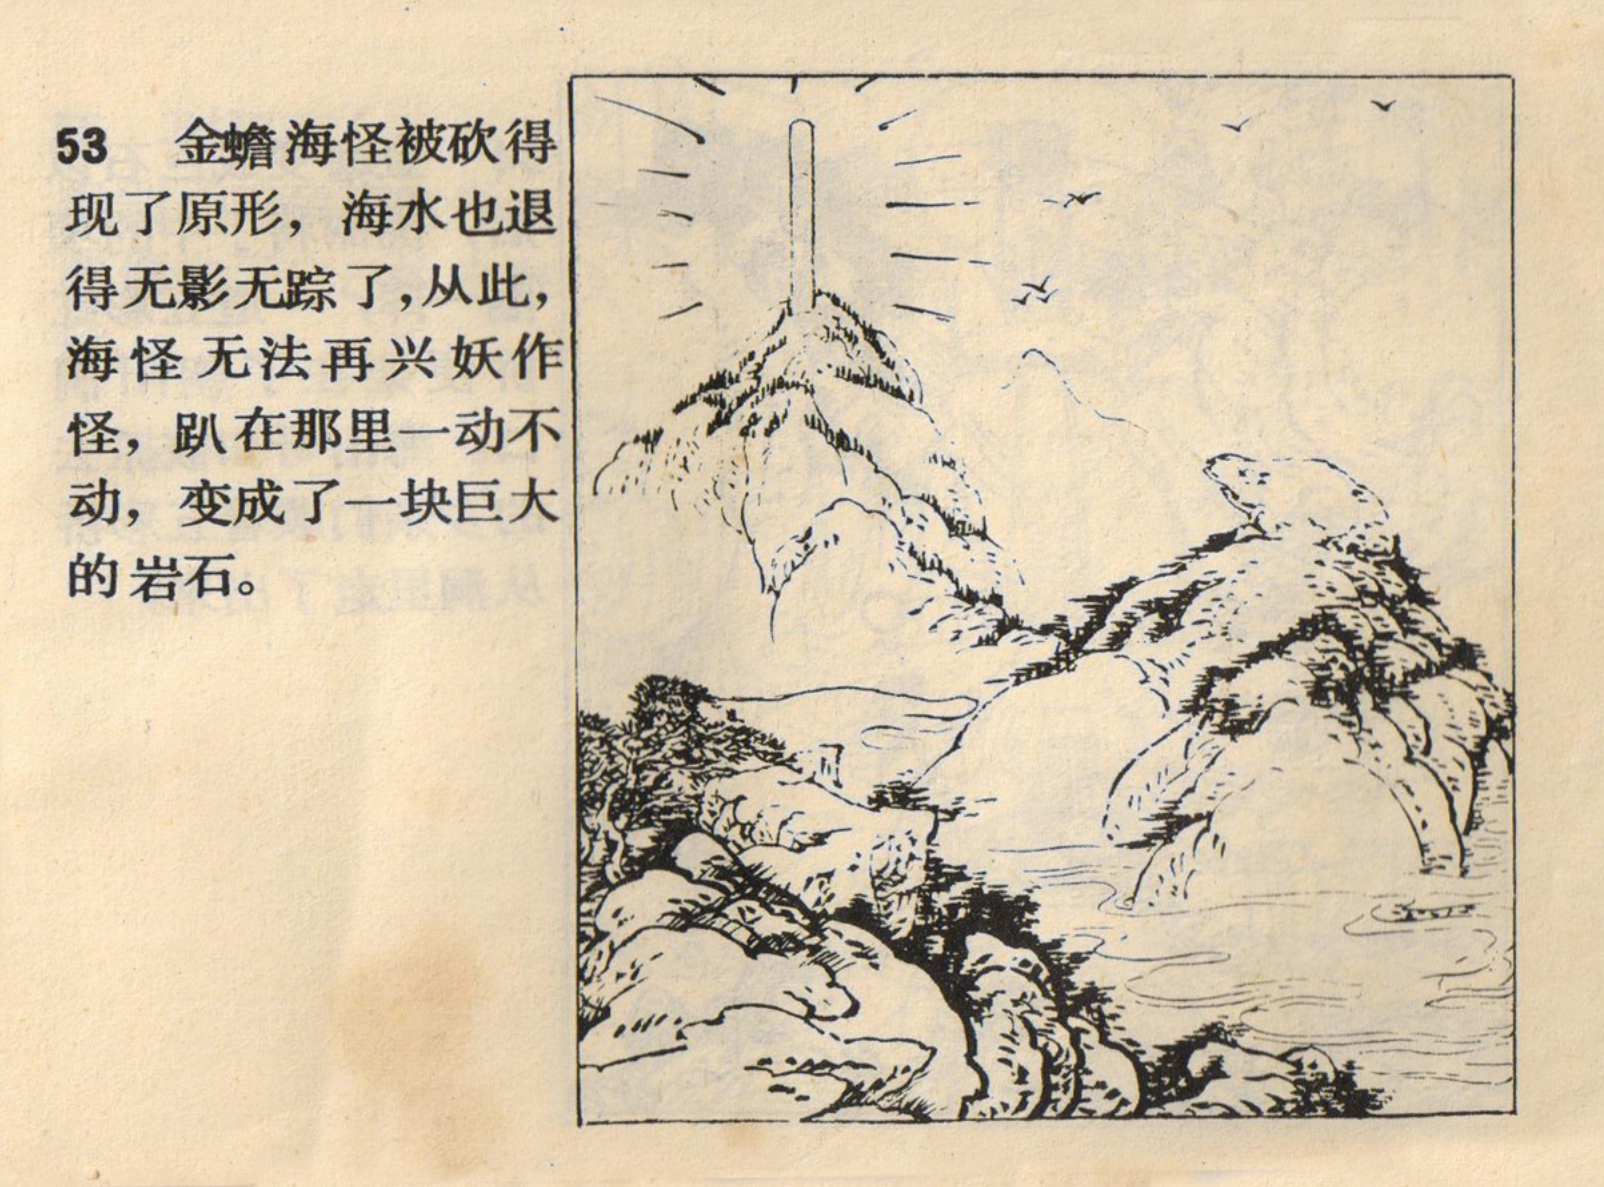 53 金蟾海怪被砍得
现了原形，海水也退
得无影无踪了，从此，
海怪无法再兴妖作
怪，趴在那里一动不
动，变成了一块巨大
的岩石。